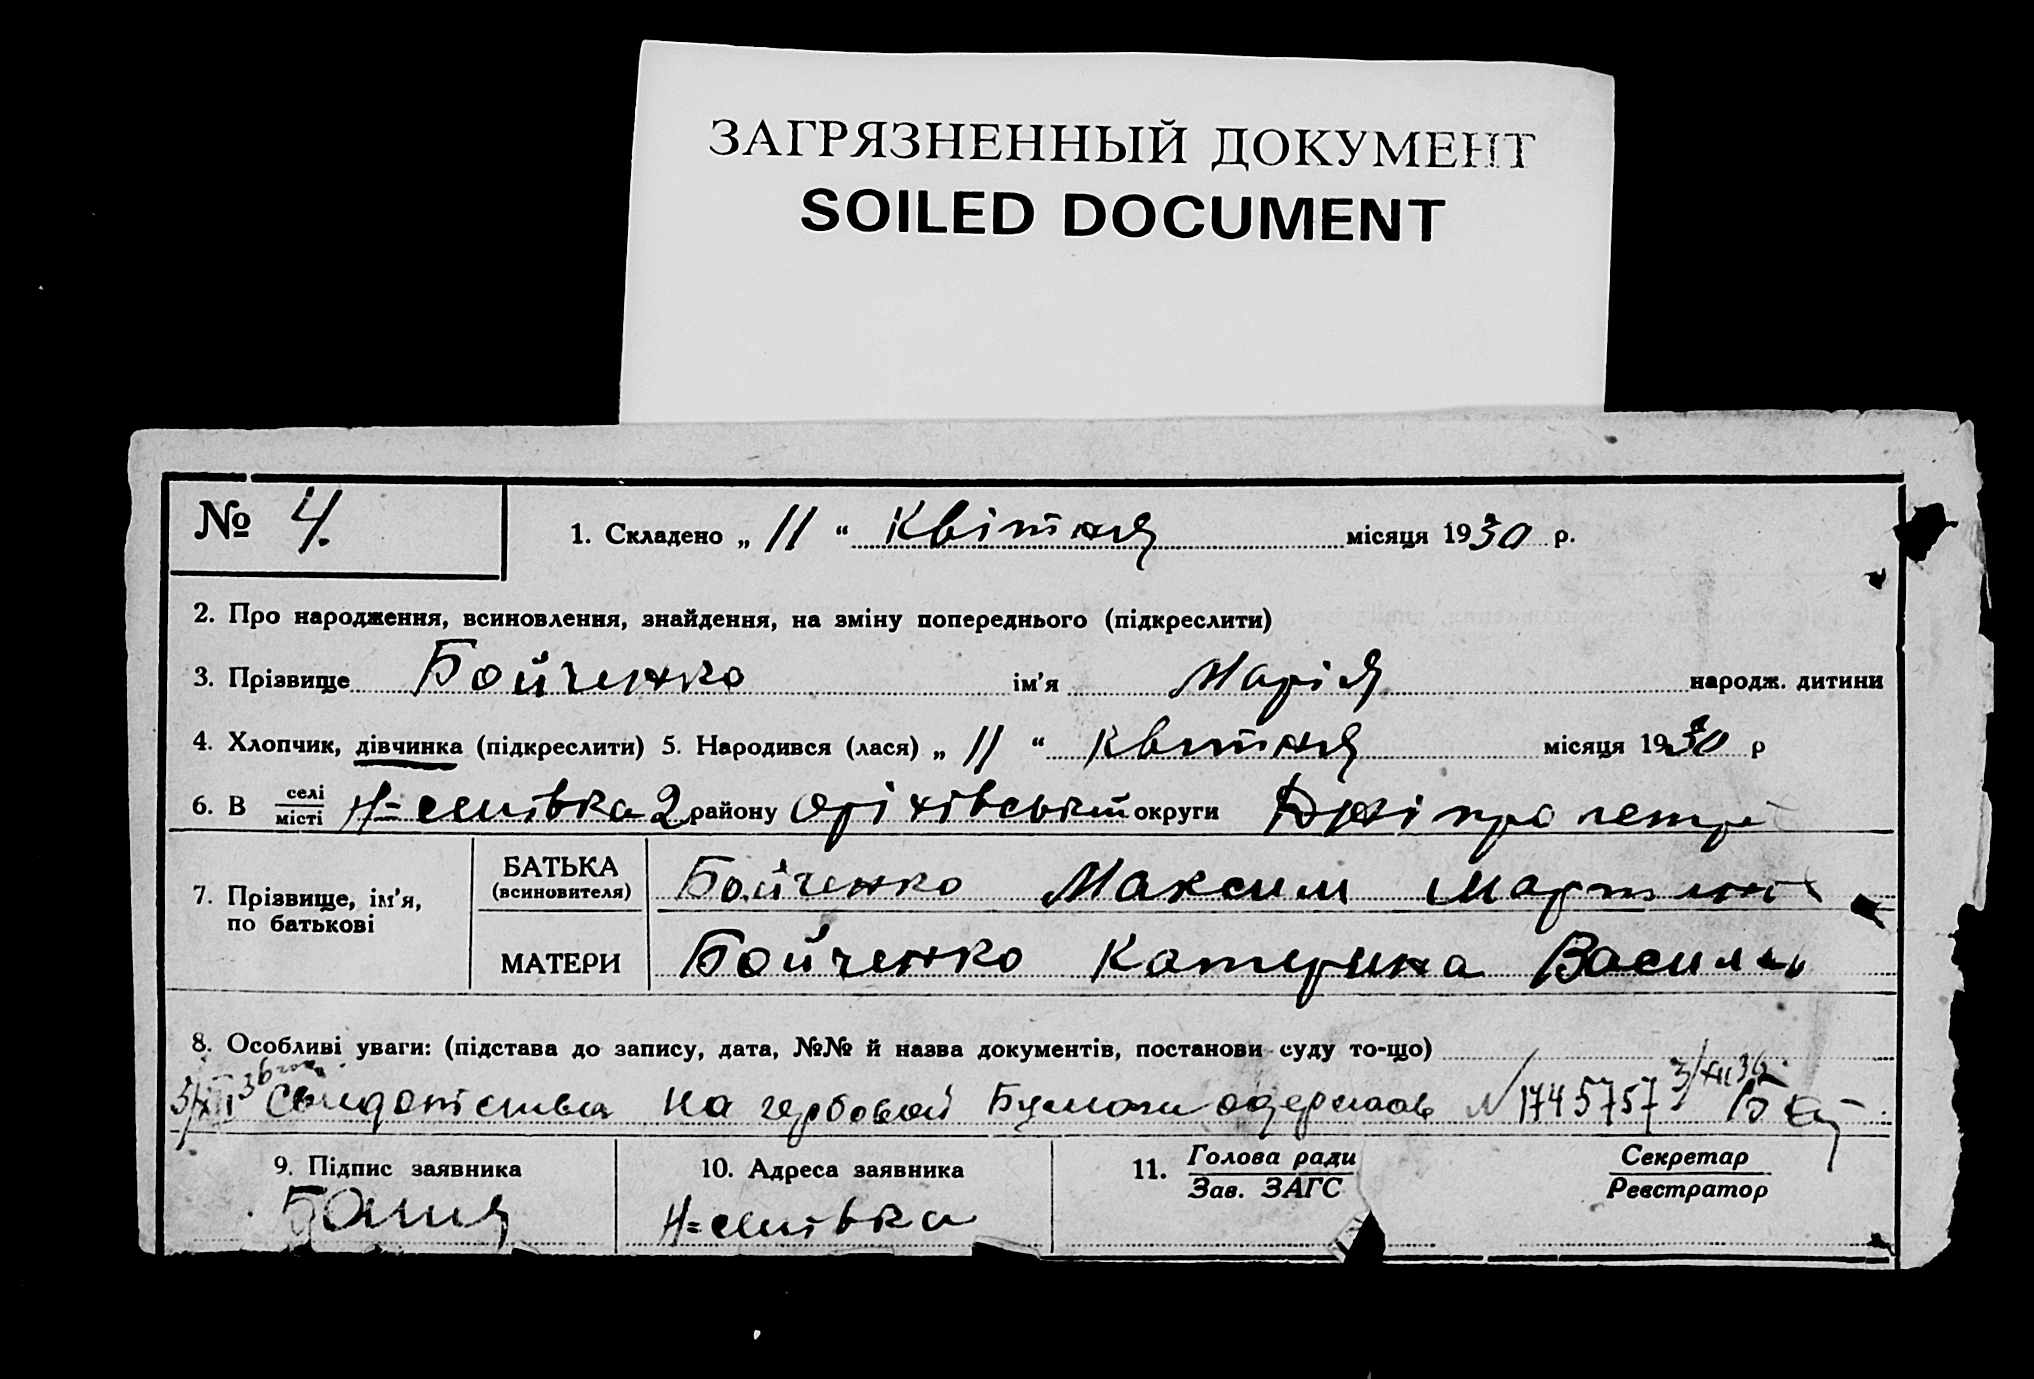 ЗАГРЯЗНЕННЫЙ ДОКУМЕНТ
SOILED DOCUMENT
№ 4.
1. Складено „ 11 “ Квітня місяця 1930 р.
2. Про народження, всиновлення, знайдення, на зміну попереднього (підкреслити)
3. Прізвище Бойченко ім’я Марія народж. дитини
4. Хлопчик, дівчинка (підкреслити) 5. Народився (лася) „ 11 “ квітня місяця 1930 р
6. В селі місті району Оріхівський округи Дніпропетр
7. Прізвище, ім’я, по батькові
БАТЬКА (всиновителя) Бойченко Максим Мартин
МАТЕРИ Бойченко Катерина Василь
8. Особливі уваги: (підстава до запису, дата, №№ й назва документів, постанови суду то-що)
3/XII 36 на гербовой Бумаги N 1745757 3/XII 36
9. Підпис заявника
10. Адреса заявника
11. Голова ради Зав. ЗАГС
Секретар Реєстратор